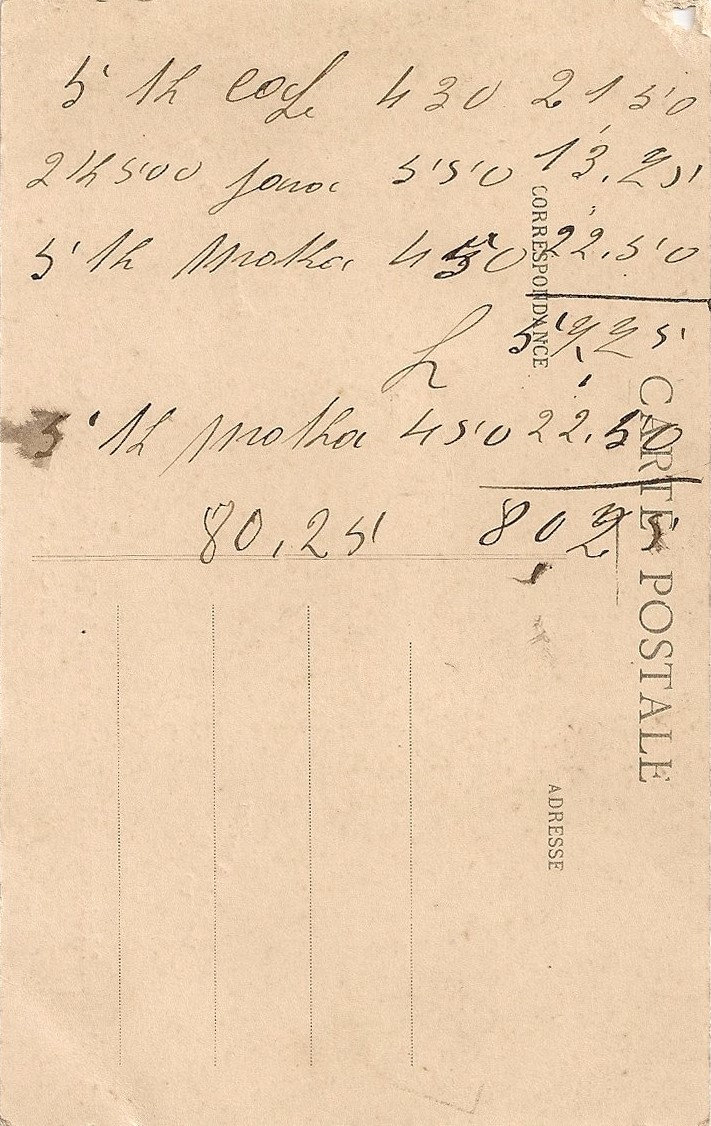 5 K Café 430 21 50
2K500 Java 550 13.75
5 K Moka 450 22.50
57,75
5 K Moka 450 22.50
80,25 80 25
CORRESPONDANCE
CARTE POSTALE
ADRESSE